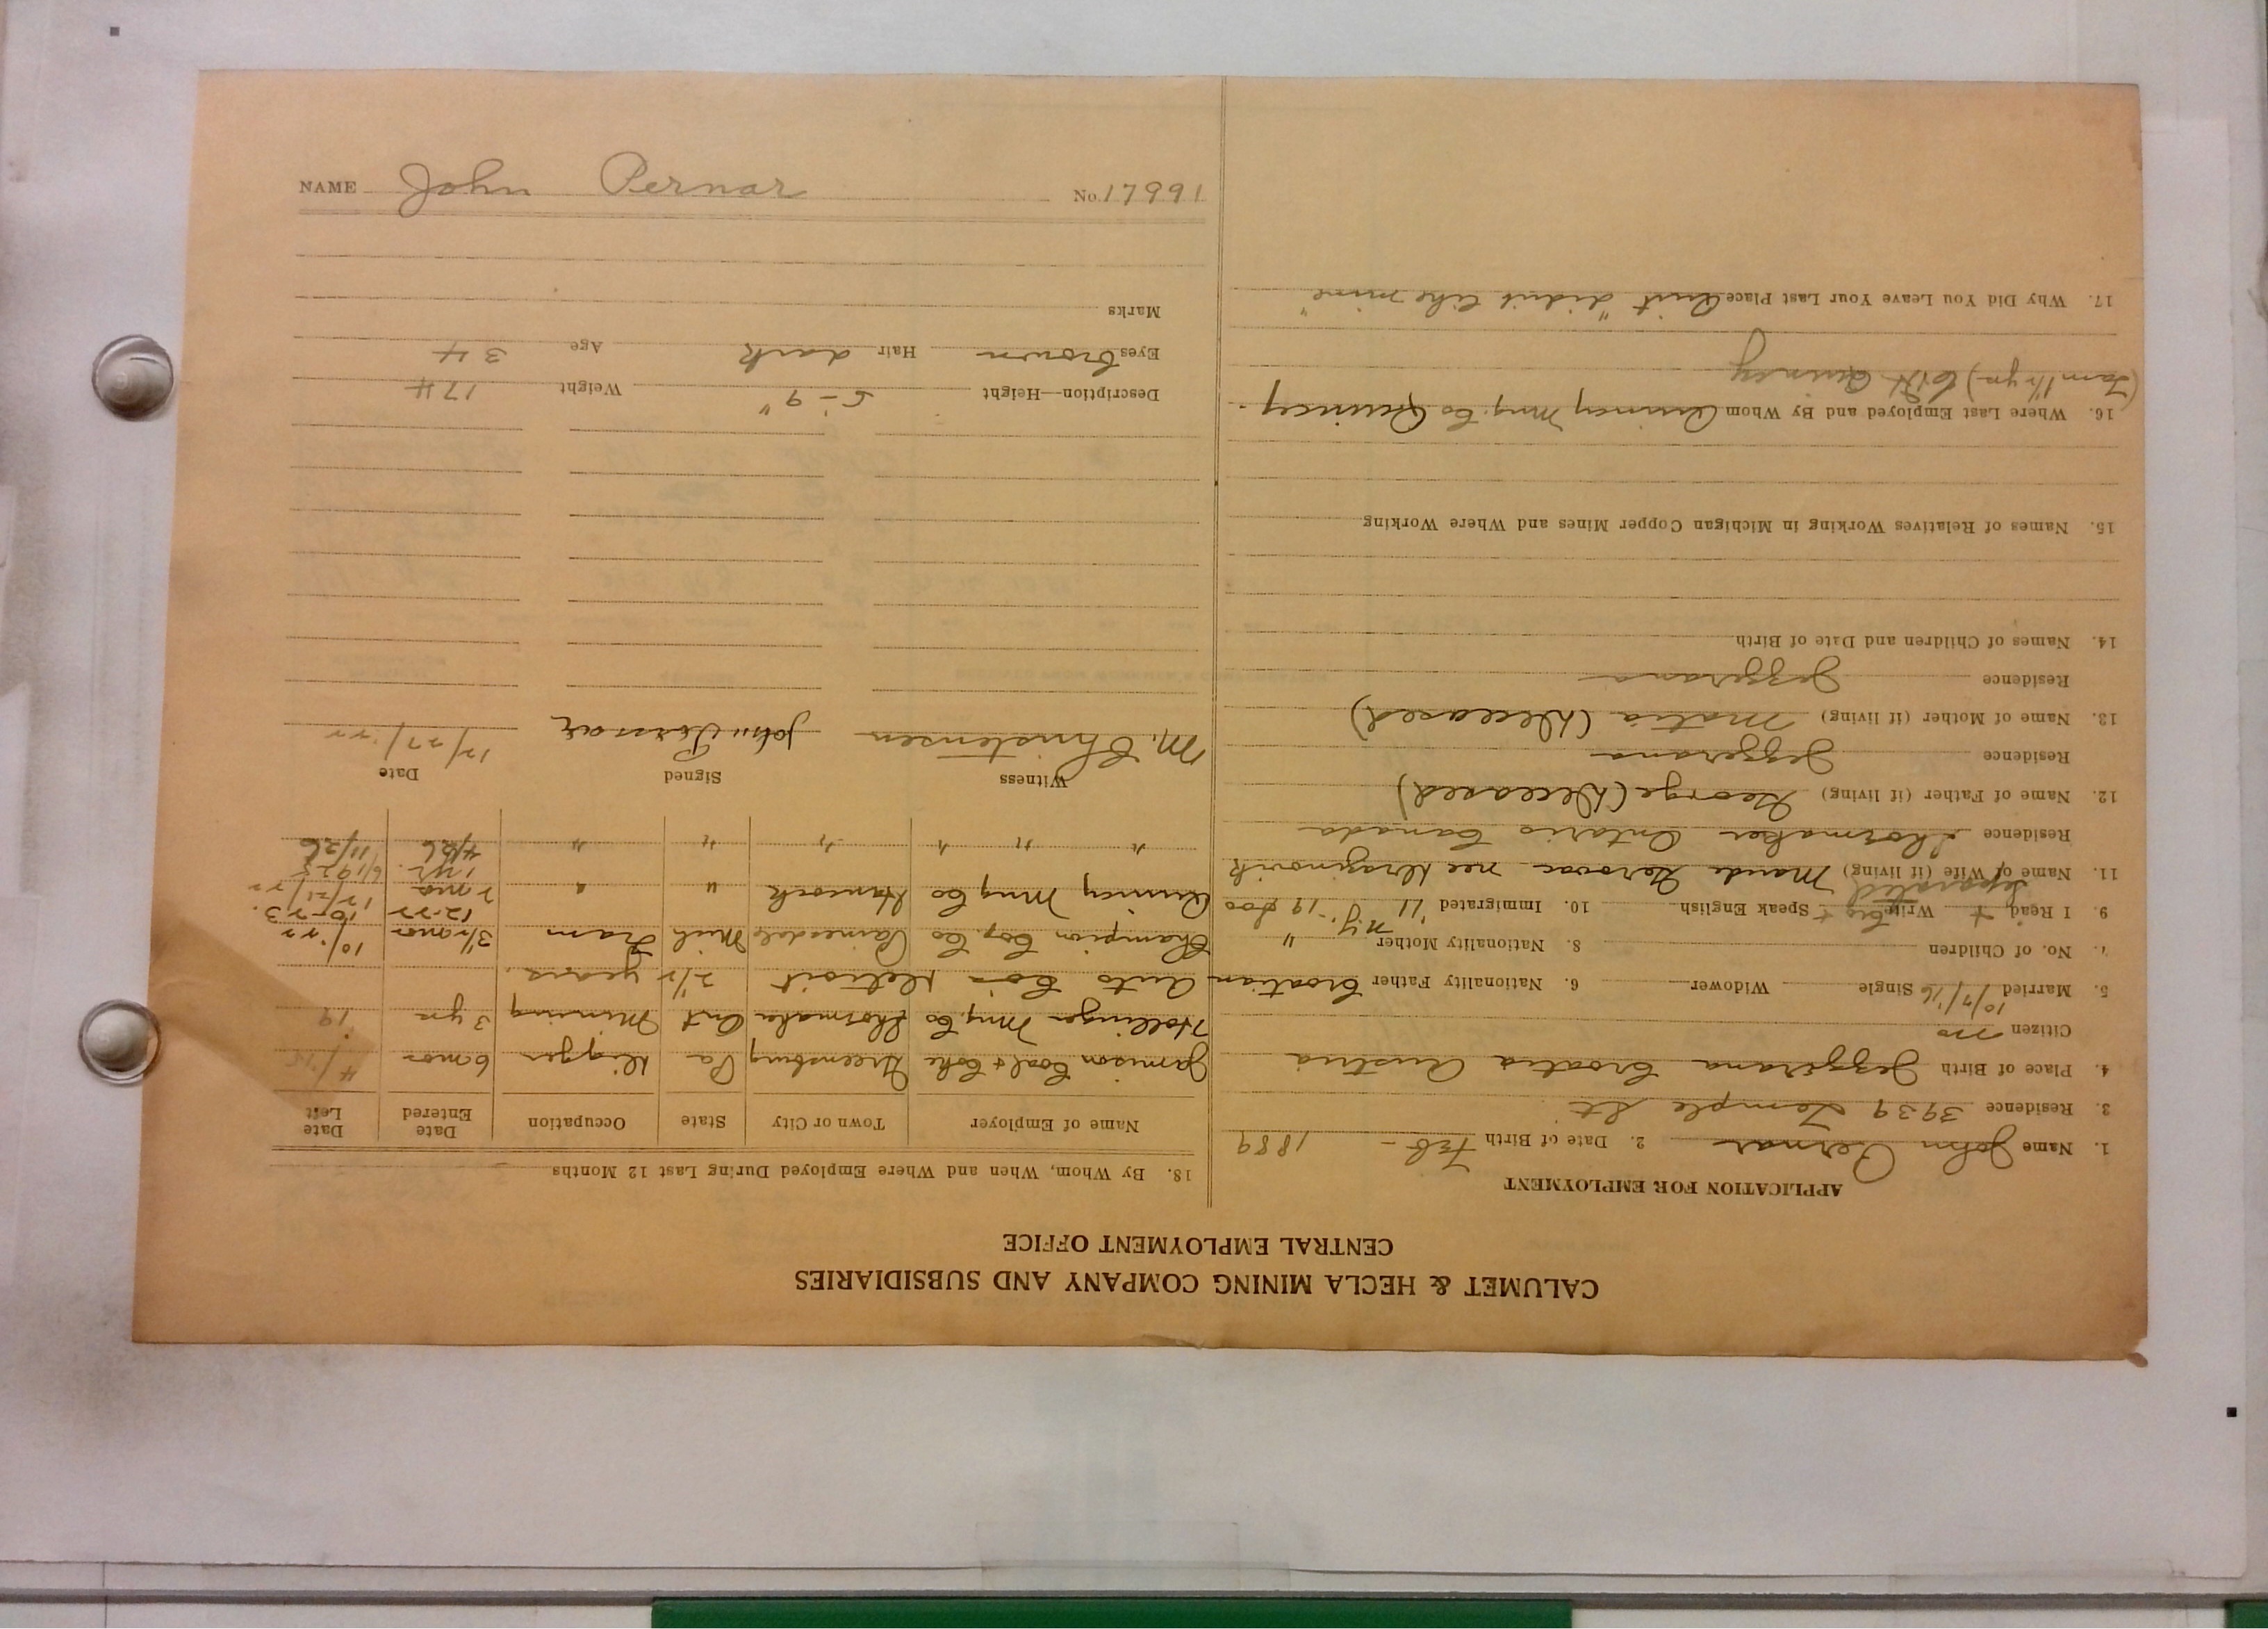 NAME John Pernar No. 17991
CALUMET & HECLA MINING COMPANY AND SUBSIDIARIES
CENTRAL EMPLOYMENT OFFICE
APPLICATION FOR EMPLOYMENT
1. Name John Pernar 2. Date of Birth Feb - 1889
3. Residence 3939 Temple St
4. Place of Birth Jezzerana Croatia Austria
Citizen no
5. Married 10/7/16 Single Widower 6. Nationality Father Croatian
7. No. of Children 8. Nationality Mother "
9. I Read + Write + Speak English 10. Immigrated '11 N.Y. - 19 Soo
Separated
11. Name of Wife (if living) Mande
Residence Ontario Canada
12. Name of Father (if living) George (Deceased)
Residence Jezzerana
13. Name of Mother (if living) Matia (Deceased)
Residence Jezzerana
14. Names of Children and Date of Birth
15. Names of Relatives Working in Michigan Copper Mines and Where Working
16. Where Last Employed and By Whom Quincy Mng. Co Quincy.
Quincy
17. Why Did You Leave Your Last Place Quit "didn't like mine"
18. By Whom, When and Where Employed During Last 12 Months
Name of Employer Town or City State Occupation Date Entered Date Left
Jamison Coal & Coke Greensburg Pa Digger 6 mos 4/15
Hollinger Mng. Co Ont Mining 3 yrs 19
Auto Co's Detroit 2 1/2 years.
Champion Cop. Co Painesdale Mich Tram 3 1/2 mos 10/22
12-22 10-23.
Quincy Mng Co Hancock " " 2 mos 12/21/22
1 yr. 6/1925
" " " " " " 4/26 11/26
Witness Signed Date
M. Christensen John Pernar 12/27/22
Description—Height 5-9" Weight 174
Eyes brown Hair dark Age 34
Marks